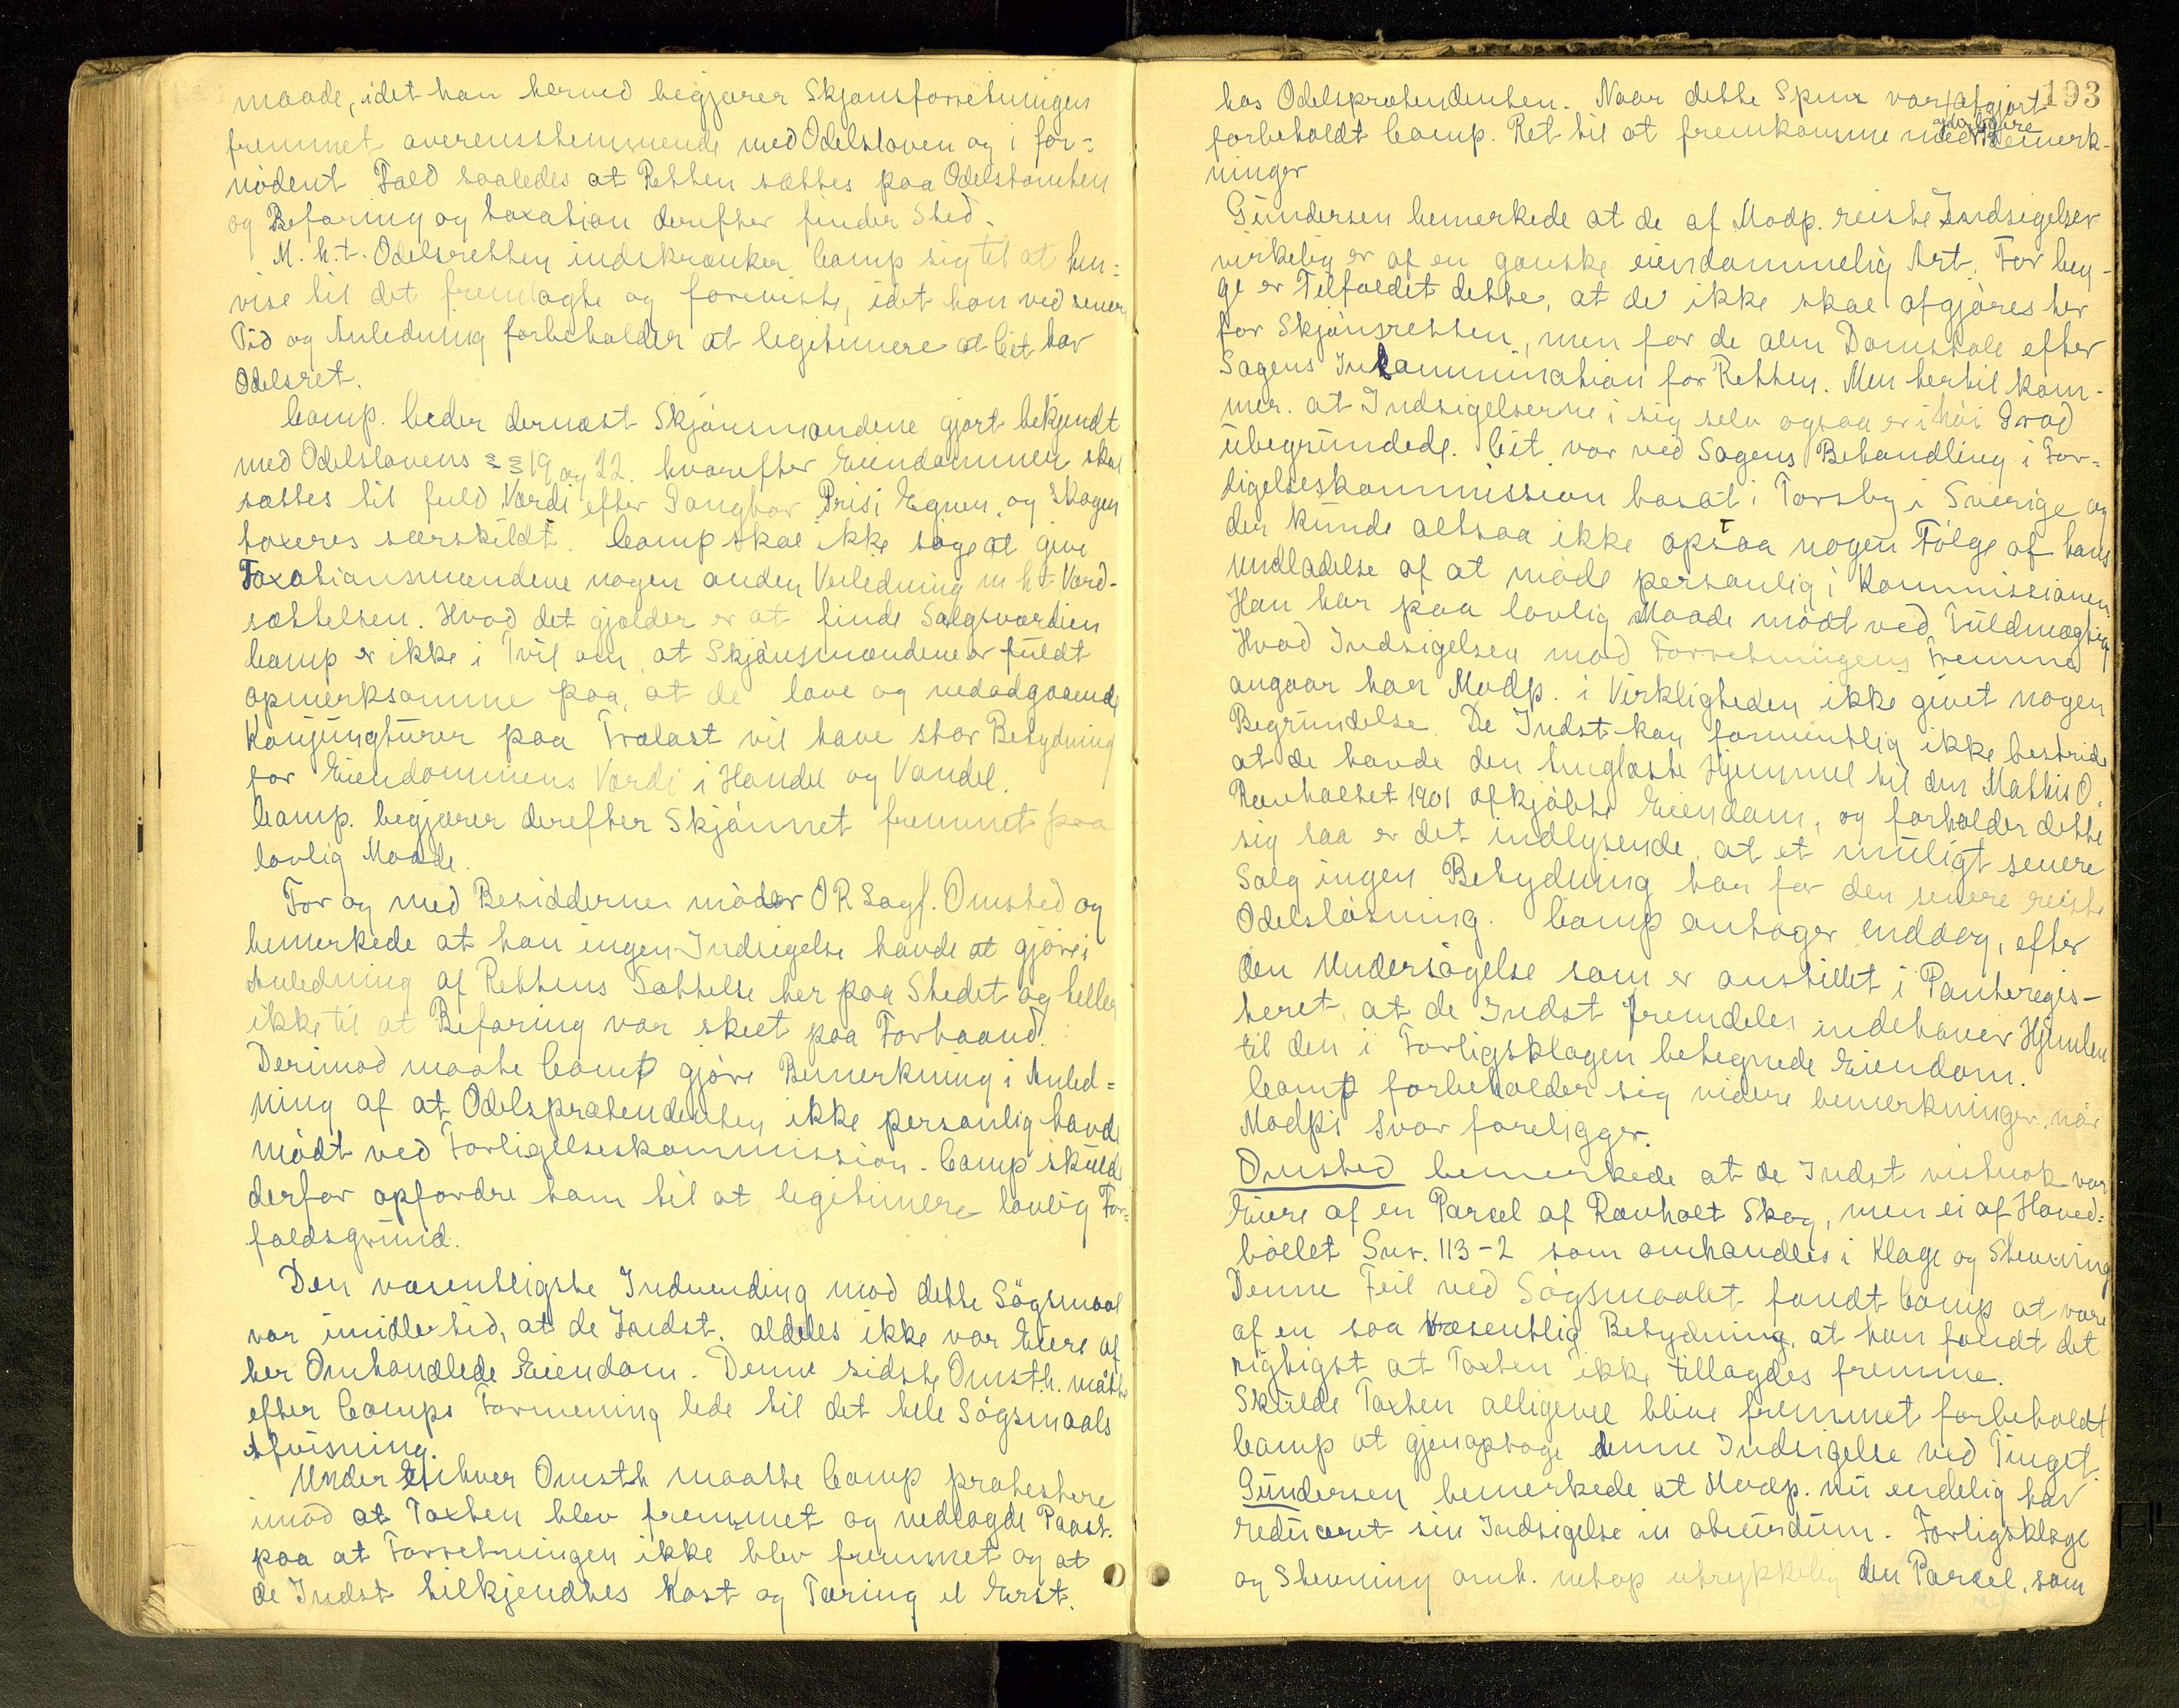 maade, idet han herved begjærer Skjønsforretningen
fremmet overensstemmende med Odelsloven og i for-
nødent Fald saaledes at Retten sættes paa Odelstomten
og Befaring og taxation derefter finder Sted.
M. h. t. Odelsretten indskrænker Comp sig til at hen-
vise til det fremlagte og foreviste, idet han ved senere
Tid og Anledning forbeholder at legitimere at Cit har
Odelsret.
Comp. beder dernæst Skjønsmændene gjort bekjendt
med Odelslovens §§ 19 og 22. hvorefter Eiendommen skal
sættes til fuld Værdi efter Gangbar Pris i Egnen, og Skogen
taxeres særskildt. Comp skal ikke søge at give
Taxationsmændene nogen anden Veiledning m h t Værd-
sættelsen. Hvad det gjælder er at finde Salgsværdien
Comp er ikke i Tvil om at Skjønsmændene er fuldt
opmerksomme paa, at de lave og nedadgaaende
Konjungturer paa Trælast vil have stor Betydning
for Eiendommens Værdi i Handel og Vandel.
Comp. begjærer derefter Skjønnet fremmet paa
lovlig Maade.
For og med Besidderne møder OR Sagf. Omsted og
bemerkede at han ingen Indsigelse havde at gjøre i
Anledning af Rettens Sættelse her paa Stedet og heller
ikke til at Befaring var skeet paa Forhaand.
Derimod maate Comp gjøre Bemerkning i Anled-
ning af at Odelsprætendenten ikke personlig havde
mødt ved Forligelseskommission. Comp skulde
derfor opfordre ham til at legitimere lovlig For-
faldsgrund.
Den væsentligste Indvending mod dette Søgsmaal
var imidlertid, at de Indst. aldeles ikke var Eiere af
her Omhandlede Eiendom. Denne sidste Omsth. måtte
efter Comps Formening lede til det hele Søgsmaals
Afvisning.
Under Enhver Omsth maatte Comp protestere
imod at Taxten blev fremmet og nedlagde Paast.
paa at Forretningen ikke blev fremmet og at
de Indst tilkjendtes Kost og Tæring el Erst.
193
hos Odelsprætendenten. Naar dette Spm var afgjort
forbeholdt Comp. Ret til at fremkomme med yderligere Bemerk-
ninger
Gundersen bemerkede at de af Modp. reiste Indsigelser
virkelig er af en ganske eiendommelig Art. For beg-
ge er Tilfældet dette, at de ikke skal afgjøres her
for Skjønsretten, men for de alm Domstole efter
Sagens Incammination for Retten. Men hertil kom-
mer. at Indsigelserne i sig selv ogsaa er i høi Grad
ubegrundede. Cit var ved Sagens Behandling i For-
ligelseskommission bosat i Torsby i Sverige og
der kunde altsaa ikke opstaa nogen Følge af hans
Undladelse af at møde personlig i Kommissionen.
Han har paa lovlig Maade mødt ved Fuldmægtig
Hvad Indsigelsen mod Forretningens Fremme
angaar har Modp. i Virkligheden ikke givet nogen
Begrundelse. De Indst kan formentlig ikke bestride
at de havde den tinglæste Hjemmel til den Mathis O.
Ravholtet 1901 afkjøbte Eiendom, og forholder dette
sig saa er det indlysende, at et muligt senere
Salg ingen Betydning har for den senere reiste
Odelsløsning. Comp antager endog, efter
den Undersøgelse som er anstillet i Panteregis-
teret, at de Indst fremdeles indehaver Hjemlen
til den i Forligsklagen betegnede Eiendom.
Comp forbeholder sig videre bemerkninger, når
Modpi svar foreligger.
Omsted bemerkede at de Indst vistnok var
Eiere af en Parcel af Ravholt Skog, men ei af Hoved-
bøllet Gnr. 113-2 som omhandles i Klage og Stevning
Denne Feil ved Søgsmaalet fandt Comp at være
af en saa væsentlig Betydning, at han fandt det
rigtigst at Taxten ikke tillagdes fremme.
Skulde Taxten alligevel blive fremmet forbeholdt
Comp at gjenoptage denne Indsigelse ved Tinget.
Gundersen bemerkede at Modp. nu endelig har
reduceret sin Indsigelse in absurdum. Forligsklage
og Stevning omh. netop utrykkelig den Parcel, som